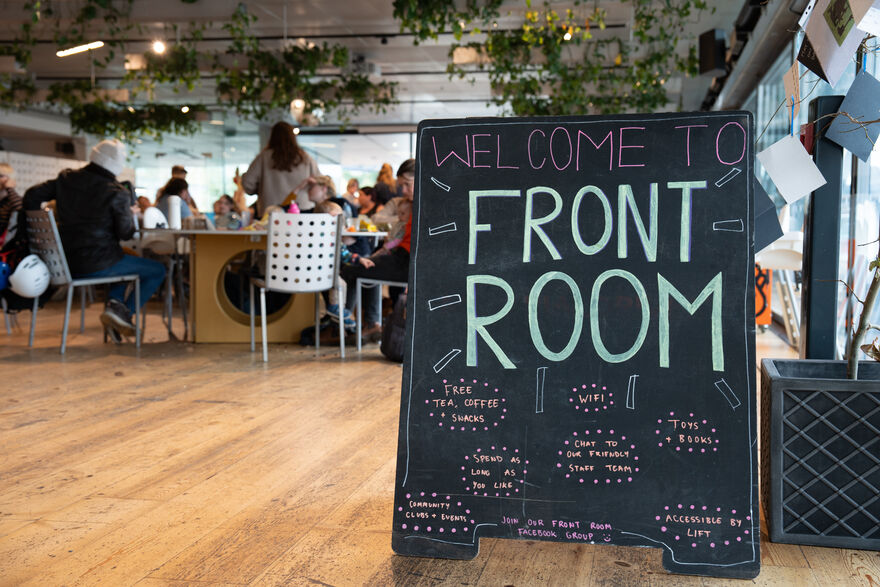 WELCOME TO
FRONT
ROOM
FREE
TEA, COFFEE
+ SNACKS
WIFI
TOYS
+ BOOKS
SPEND AS
LONG AS
YOU LIKE
CHAT TO
OUR FRIENDLY
STAFF TEAM
COMMUNITY
CLUBS + EVENTS
ACCESSIBLE BY
LIFT
JOIN OUR FRONT ROOM
FACEBOOK GROUP